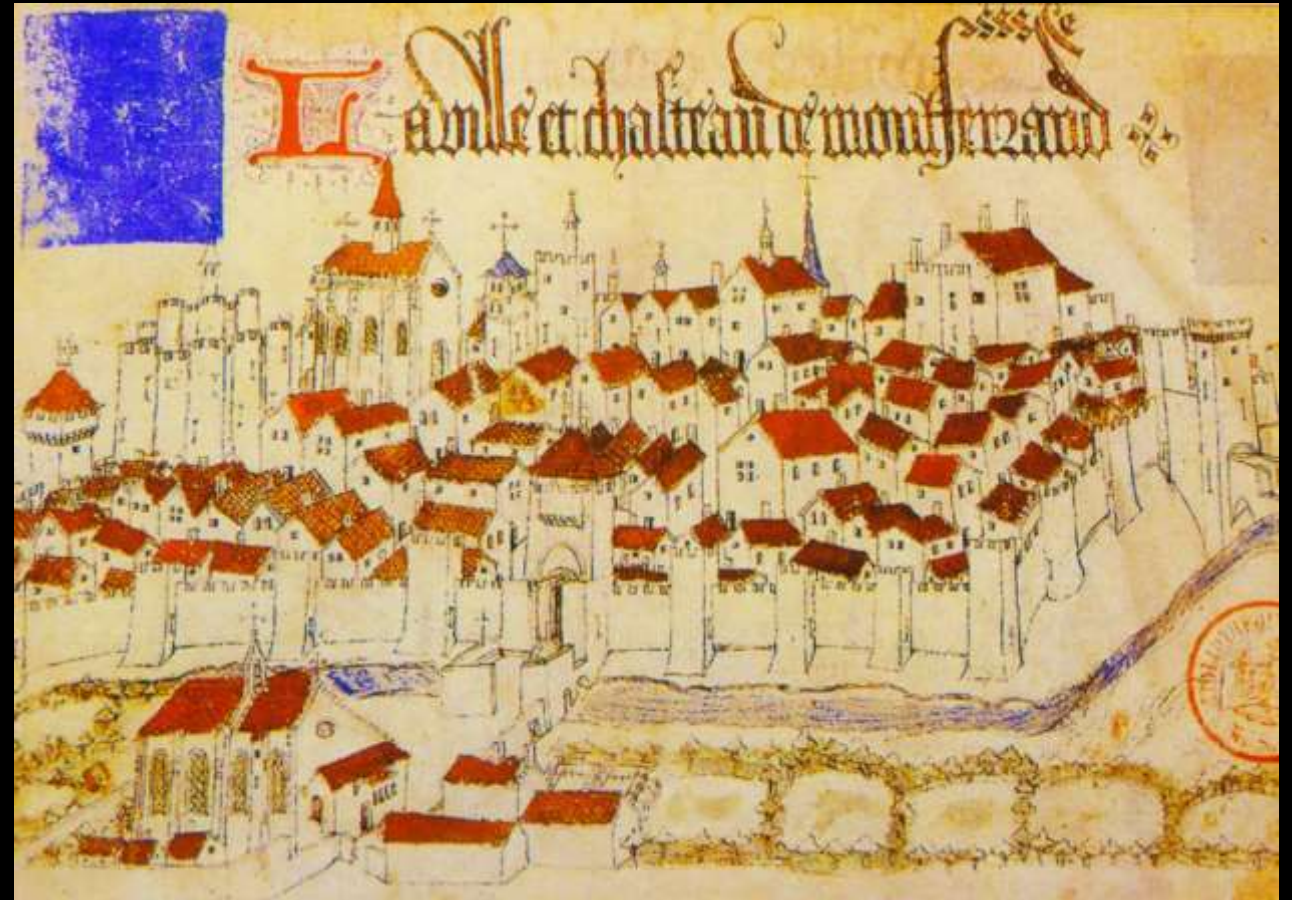 La ville et chasteau de montferrand